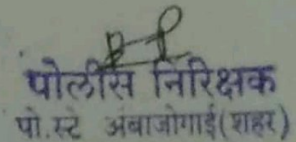 पोलीस निरिक्षक
पो.स्टे अंबाजोगाई(शहर)